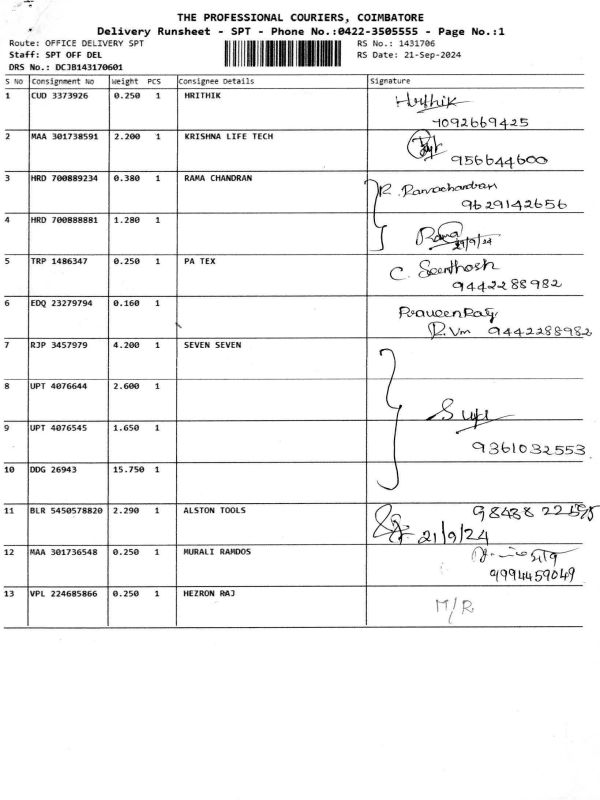 THE PROFESSIONAL COURIERS, COIMBATORE
Delivery Runsheet - SPT - Phone No.:0422-3505555 - Page No.:1
Route: OFFICE DELIVERY SPT RS No.: 1431706
Staff: SPT OFF DEL RS Date: 21-Sep-2024
DRS No.: DCJB143170601
S No Consignment No Weight PCS Consignee Details Signature
1 CUD 3373926 0.250 1 HRITHIK Hrithik
7092669425
2 MAA 301738591 2.200 1 KRISHNA LIFE TECH
956644600
3 HRD 700889234 0.380 1 RAMA CHANDRAN R. Ramachandran
9629142656
4 HRD 700888881 1.280 1 Rama
21/9/24
5 TRP 1486347 0.250 1 PA TEX C. Senthosh
9442288982
6 EDQ 23279794 0.160 1 Praveen Raj
R.Vm 9442288982
7 RJP 3457979 4.200 1 SEVEN SEVEN
8 UPT 4076644 2.600 1
9 UPT 4076545 1.650 1
9361032553
10 DDG 26943 15.750 1
11 BLR 5450578820 2.290 1 ALSTON TOOLS 98438
21/9/24
12 MAA 301736548 0.250 1 MURALI RAMDOS
9994459049
13 VPL 224685866 0.250 1 HEZRON RAJ M/R